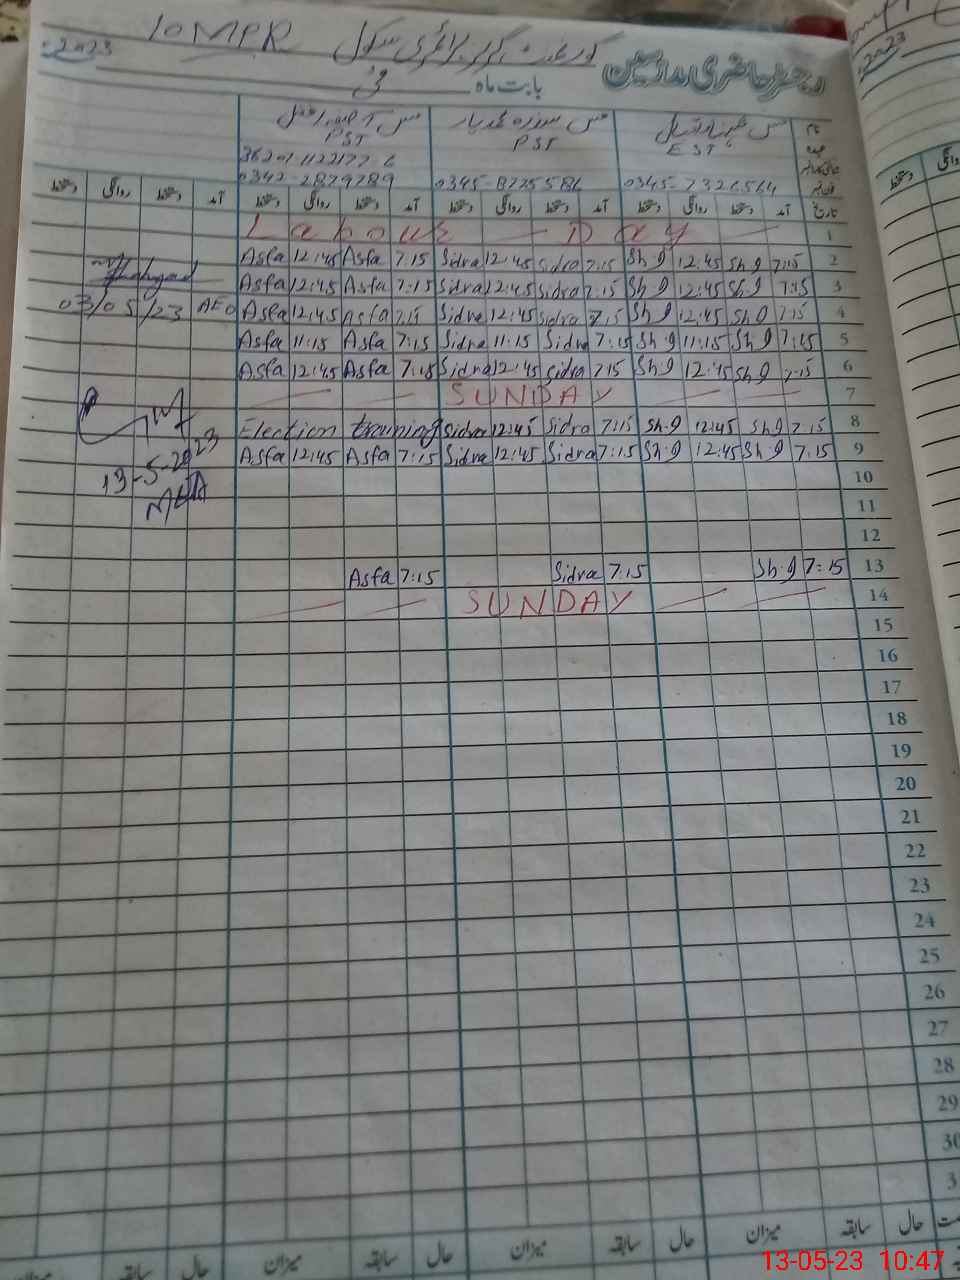 10 MPR گورنمنٹ گرلز پرائمری سکول
رجسٹر حاضری مدرسین
2023
بابت ماہ مئی
مس
PST
36201-1122177-6
0342-2879789
مس سدرہ
PST
0345-8725586
مس شہناز اقبال
EST
0345-7326564
نام
عہدہ
دستخط روانگی دستخط آمد دستخط روانگی دستخط آمد دستخط روانگی دستخط آمد دستخط روانگی دستخط آمد تاریخ
Labour Day 1
Asfa 12:45 Asfa 7:15 Sidra 12:45 Sidra 7:15 Sh.g 12:45 Sh.g 7:15 2
Asfa 12:45 Asfa 7:15 Sidra 12:45 Sidra 7:15 Sh.g 12:45 Sh.g 7:15 3
03/05/23 AEO Asfa 12:45 Asfa 7:15 Sidra 12:45 Sidra 7:15 Sh.g 12:45 Sh.g 7:15 4
Asfa 11:15 Asfa 7:15 Sidra 11:15 Sidra 7:15 Sh.g 11:15 Sh.g 7:15 5
Asfa 12:45 Asfa 7:15 Sidra 12:45 Sidra 7:15 Sh.g 12:45 Sh.g 7:15 6
SUNDAY 7
Election training Sidra 12:45 Sidra 7:15 Sh.g 12:45 Sh.g 7:15 8
13-5-2023 Asfa 12:45 Asfa 7:15 Sidra 12:45 Sidra 7:15 Sh.g 12:45 Sh.g 7:15 9
MEA 10
11
12
Asfa 7:15 Sidra 7:15 Sh.g 7:15 13
SUNDAY 14
15
16
17
18
19
20
21
22
23
24
25
26
27
28
29
30
3
میزان سابقہ حال میزان سابقہ حال میزان سابقہ حال میزان سابقہ حال
13-05-23 10:47
2023
روانگی
دستخط